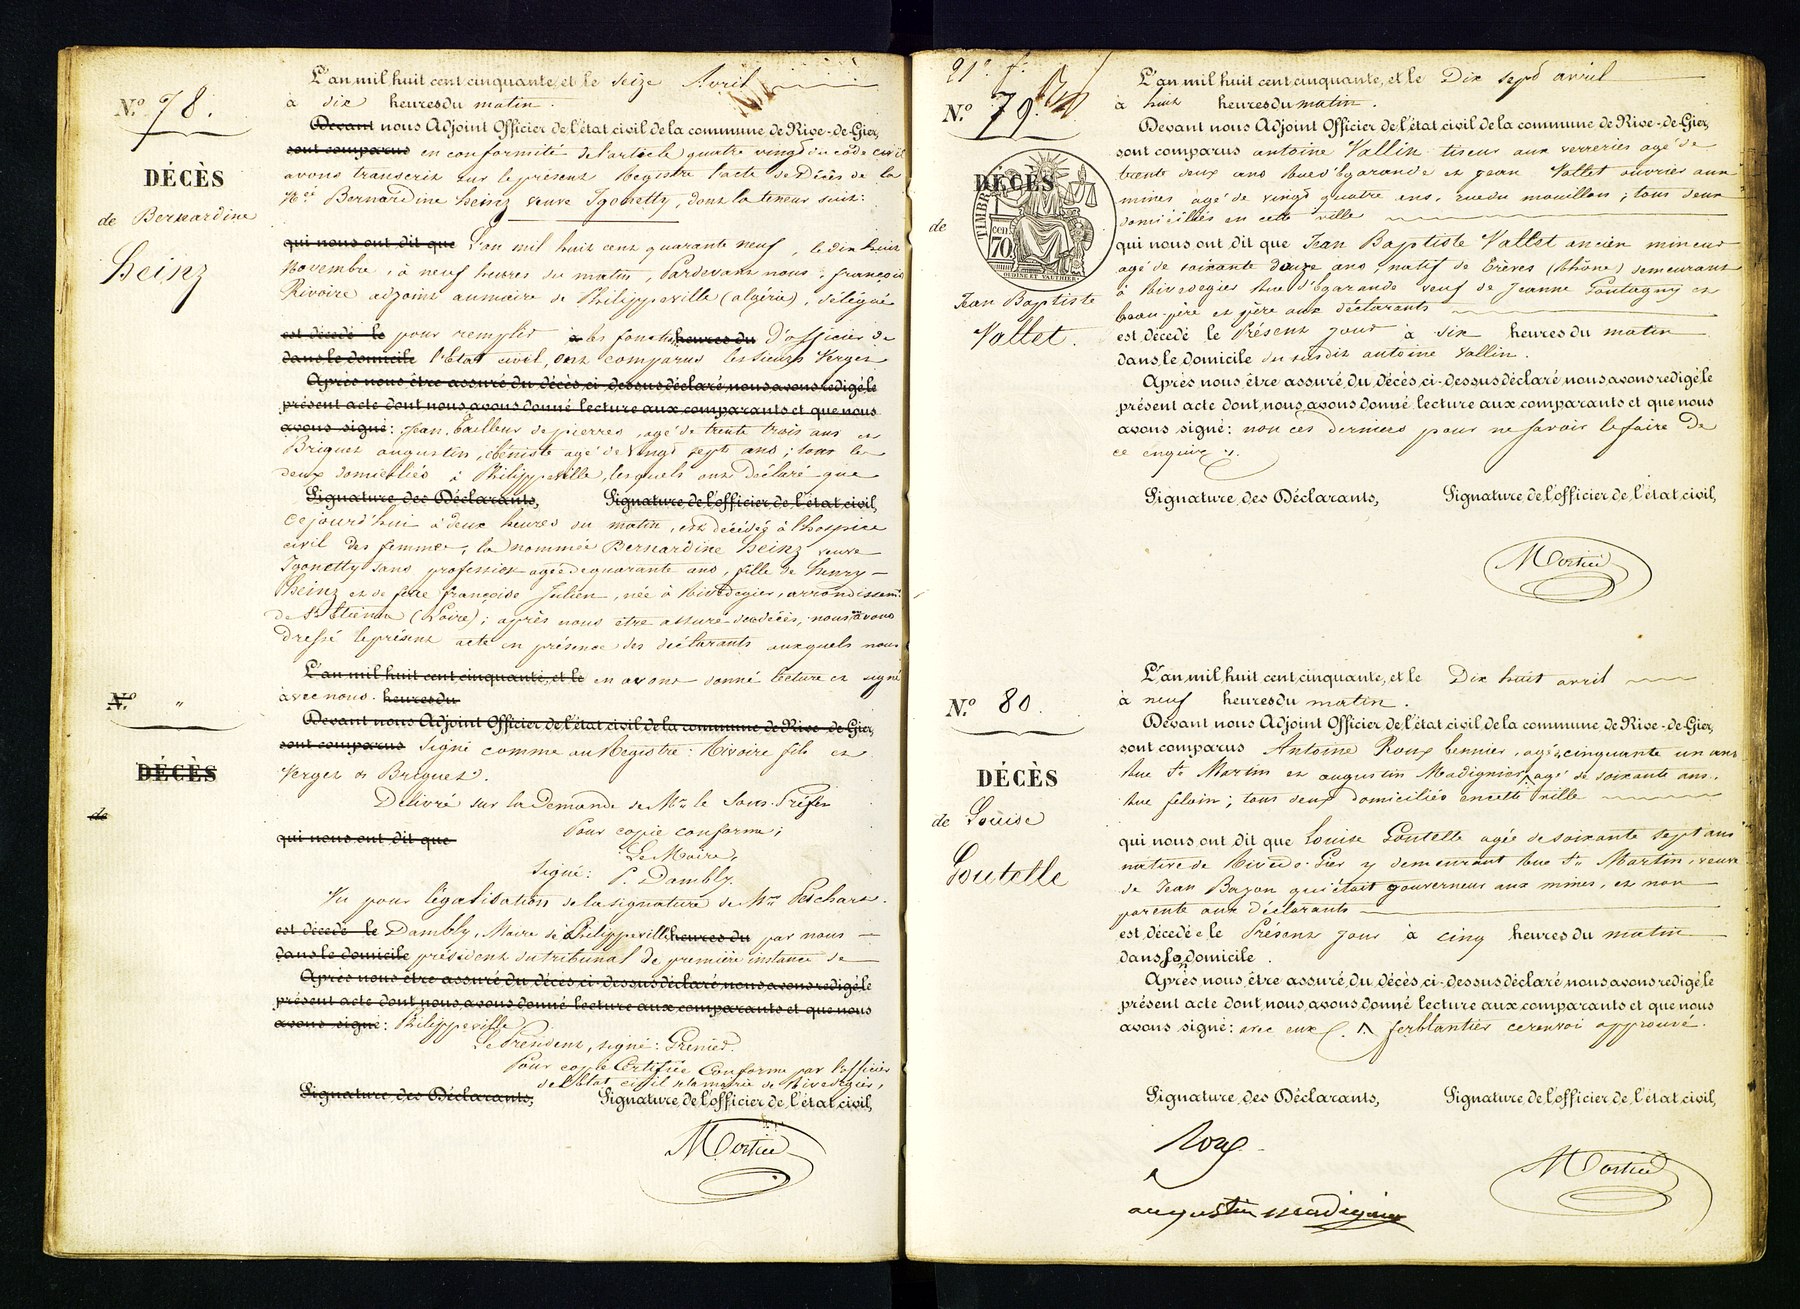 N.º 78.
DÉCÈS
de Bernardine
Heinz
L'an mil huit cent cinquante, et le seize Avril
à dix heures du matin.
Devant nous Adjoint Officier de l'état civil de la commune de Rive-de-Gier,
sont comparus en conformité de l'article quatre vingt du code civil
avons transcrit sur le présent Registre l'acte de Décès de la
Née Bernardine Heinz veuve Igonetty, dont la teneur suit:
qui nous ont dit que L'an mil huit cent quarante neuf, le dix huit
Novembre, à neuf heures du matin, Pardevant nous: françois
Rivoire adjoint au maire de Philippeville (algérie), délégué
est décédé le pour remplir à les fonctions heures du D'officier de
dans le domicile l'Etat civil, ont comparus les sieurs Verges
Après nous être assuré du décès, ci-dessus déclaré, nous avons redigé le
présent acte dont nous avons donné lecture aux comparants et que nous
avons signé: Jean, tailleur de pierres, agé de trente trois ans et
Briguet augustin, ébéniste agé de vingt sept ans; tous les
deux domiciliés à Philippeville, lesquels ont déclaré que
Signature des Déclarants, Signature de l'officier de l'état civil,
cejourd'hui à deux heures du matin, est décédée à l'hospice
civil des femmes, la nommée Bernardine Heinz veuve
Igonetty sans profession agée de quarante ans, fille de henry
Heinz et de feue françoise Julien, née à Rivedegier, arrondissem.t
de St Etienne (Loire); après nous être assuré du décès, nous en avons
dressé le présent acte en présence des déclarants auxquels nous
N.º "
DÉCÈS
de
L'an mil huit cent cinquante, et le en avons donné lecture et signé
à avec nous. heures du
Devant nous Adjoint Officier de l'état civil de la commune de Rive-de-Gier,
sont comparus Signé comme au Registre: Rivoire fils et
Verges & Briguet.
Délivré sur la Demande de Mr. le Sous-Préfet
Pour copie conforme;
qui nous ont dit que
Le Maire,
Signé: P. Dambly.
Vu pour légalisation de la signature de Mr.
est décédé le Dambly, Maire de Philippeville, heures du par nous
dans le domicile président du tribunal de première instance de
Après nous être assuré du décès, ci-dessus déclaré, nous avons redigé le
présent acte dont nous avons donné lecture aux comparants et que nous
avons signé: Philippeville
Le Président, signé: Grenier.
Pour copie Certifiée Conforme par l'officier
de l'état civil de la mairie de Rivedegier,
Signature des Déclarants, Signature de l'officier de l'état civil,
Mortier
91e f.
N.º 79.
DÉCÈS
TIMBRE
70
cent
OUDINÉ ET VAUTHIER
de
Jean Baptiste
Vallet.
L'an mil huit cent cinquante, et le Dix sept avril
à huit heures du matin.
Devant nous Adjoint Officier de l'état civil de la commune de Rive-de-Gier,
sont comparus antoine Vallin tiseur aux verreries agé de
trente deux ans Rue d'Egarande et jean Vallet ouvrier aux
mines agé de vingt quatre ans, rue du mouillon; tous deux
domiciliés en cette ville
qui nous ont dit que Jean Baptiste Vallet ancien mineur
agé de soixante douze ans, natif de Trèves (Rhône) demeurant
à Rivedegier Rue d'Egarande veuf de Jeanne Goutagny et
beau-père et père aux déclarants
est décédé le Présent jour à six heures du matin
dans le domicile du susdit antoine Vallin.
Après nous être assuré du décès, ci-dessus déclaré, nous avons redigé le
présent acte dont nous avons donné lecture aux comparants et que nous
avons signé: non ces derniers pour ne savoir le faire de
ce enquis.
Signature des Déclarants, Signature de l'officier de l'état civil,
Mortier
N.º 80.
DÉCÈS
de Louise
Goutelle
L'an mil huit cent cinquante, et le Dix huit avril
à neuf heures du matin.
Devant nous Adjoint Officier de l'état civil de la commune de Rive-de-Gier,
sont comparus Antoine Roux bennier, agé cinquante un ans
Rue St Martin et augustin Madignier, agé de soixante ans,
Rue feloin; tous deux domiciliés en cette ville
qui nous ont dit que Louise Goutelle agée de soixante sept ans
native de Rive de Gier y demeurant Rue St Martin, veuve
de Jean Bazon qui était gouverneur aux mines, et non
parente aux déclarants
est décédée le Présent jour à cinq heures du matin
dans son domicile.
Après nous être assuré du décès, ci-dessus déclaré, nous avons redigé le
présent acte dont nous avons donné lecture aux comparants et que nous
avons signé: avec eux. ferblantier ce renvoi approuvé.
Signature des Déclarants, Signature de l'officier de l'état civil,
Roux
Mortier
augustin madignier